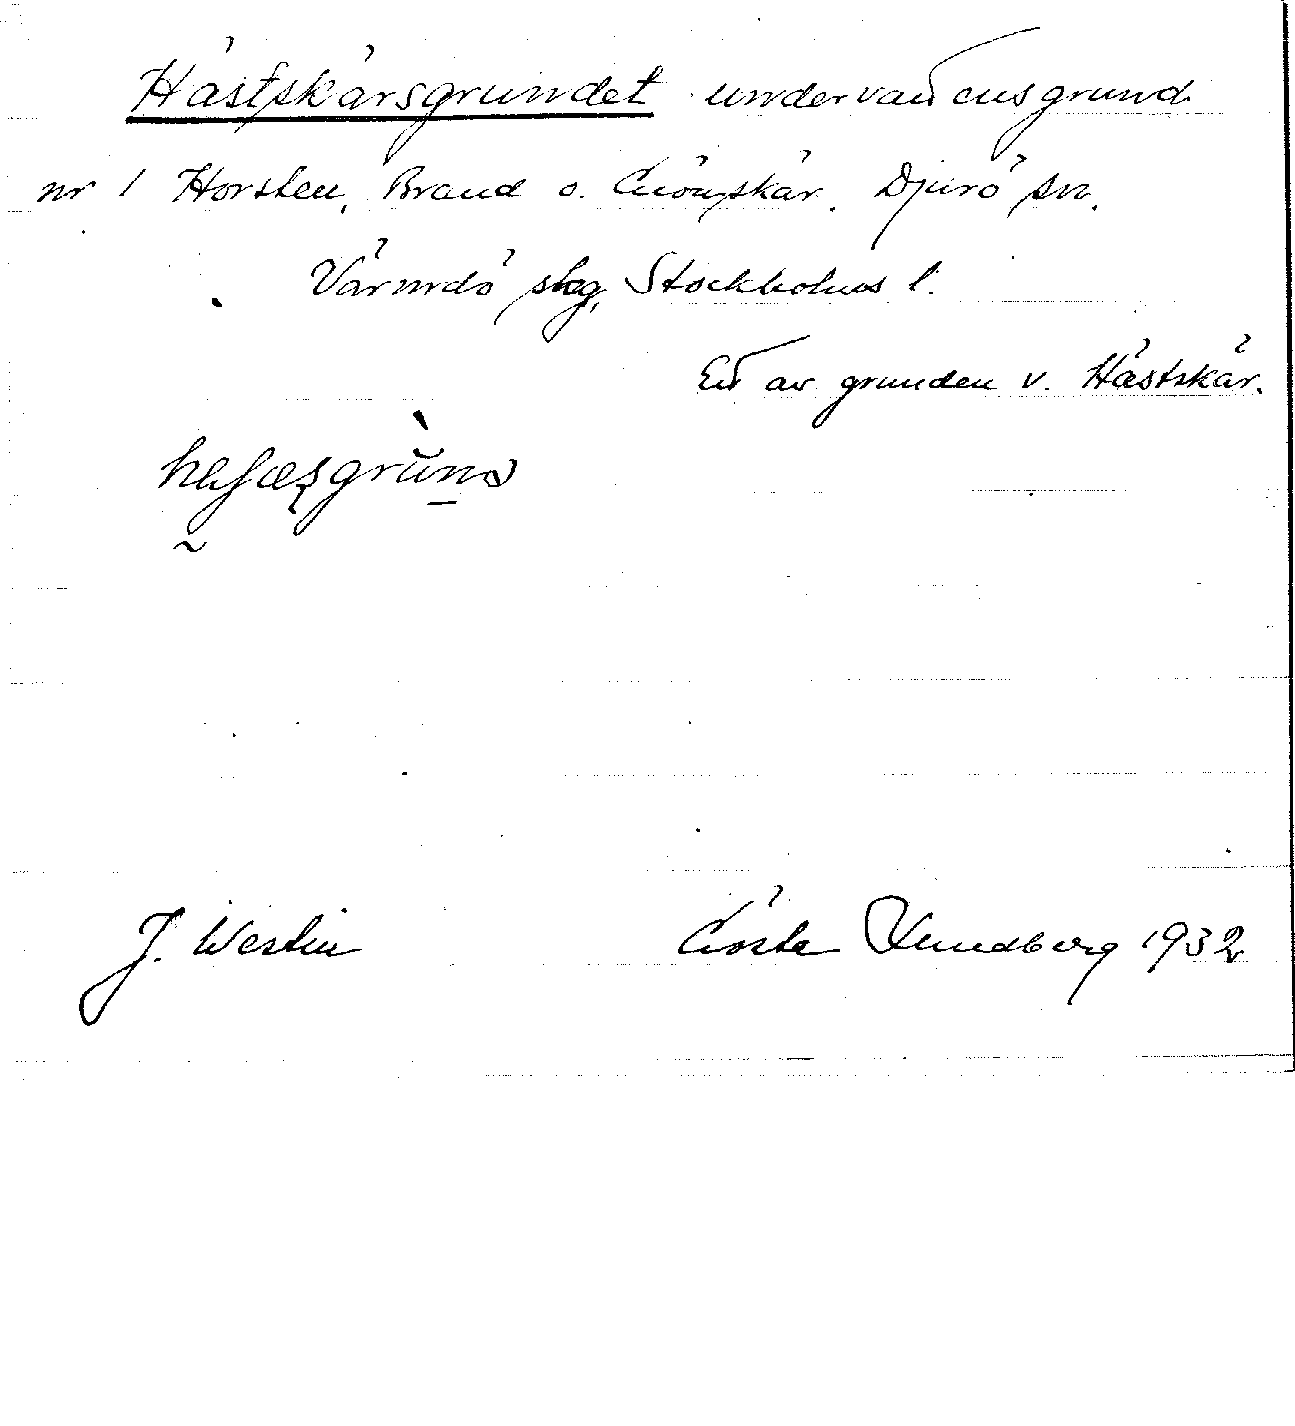 Hästskärsgrundet undervattensgrund
nr 1 Horsten, Brand o. Grönskär. Djurö sn.
Värmdö skg, Stockholms l.
Ett av grunden v. Hästskär.
J. Westin Gösta Lundberg 1932